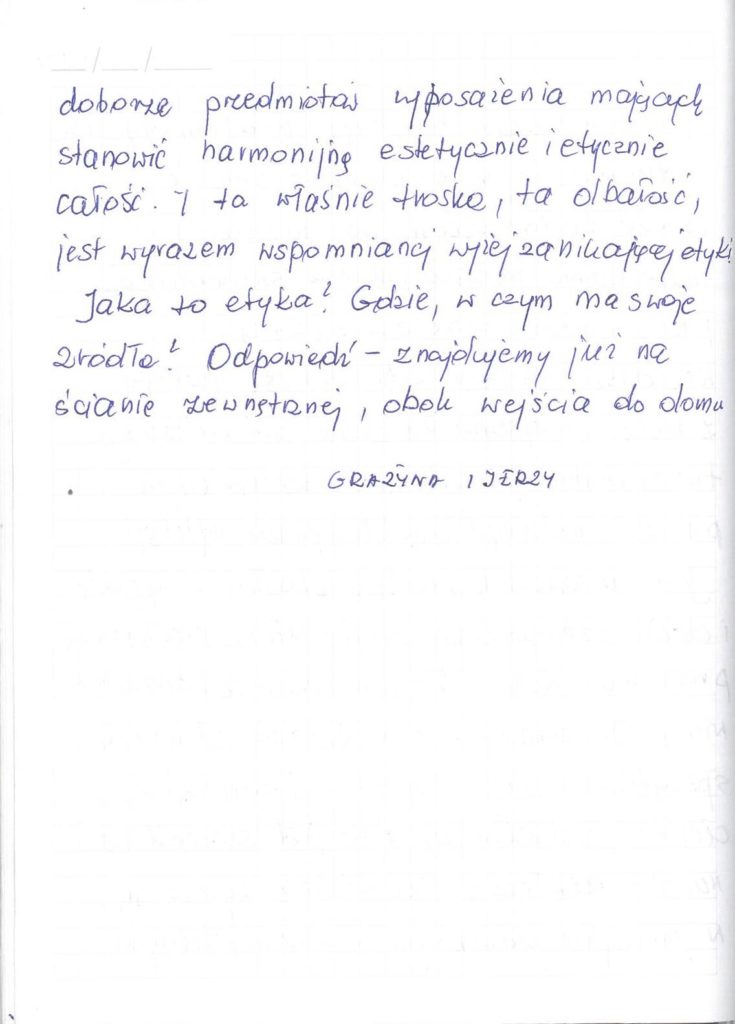 doborze przedmiotów wyposażenia mających
stanowić harmonijną estetycznie i etycznie
całość. I ta właśnie troska, ta dbałość,
jest wyrazem wspomnianej wyżej zanikającej etyki
Jaka to etyka? Gdzie, w czym ma swoje
źródła? Odpowiedź – znajdujemy już na
ścianie zewnętrznej, obok wejścia do domu
GRAŻYNA I JERZY